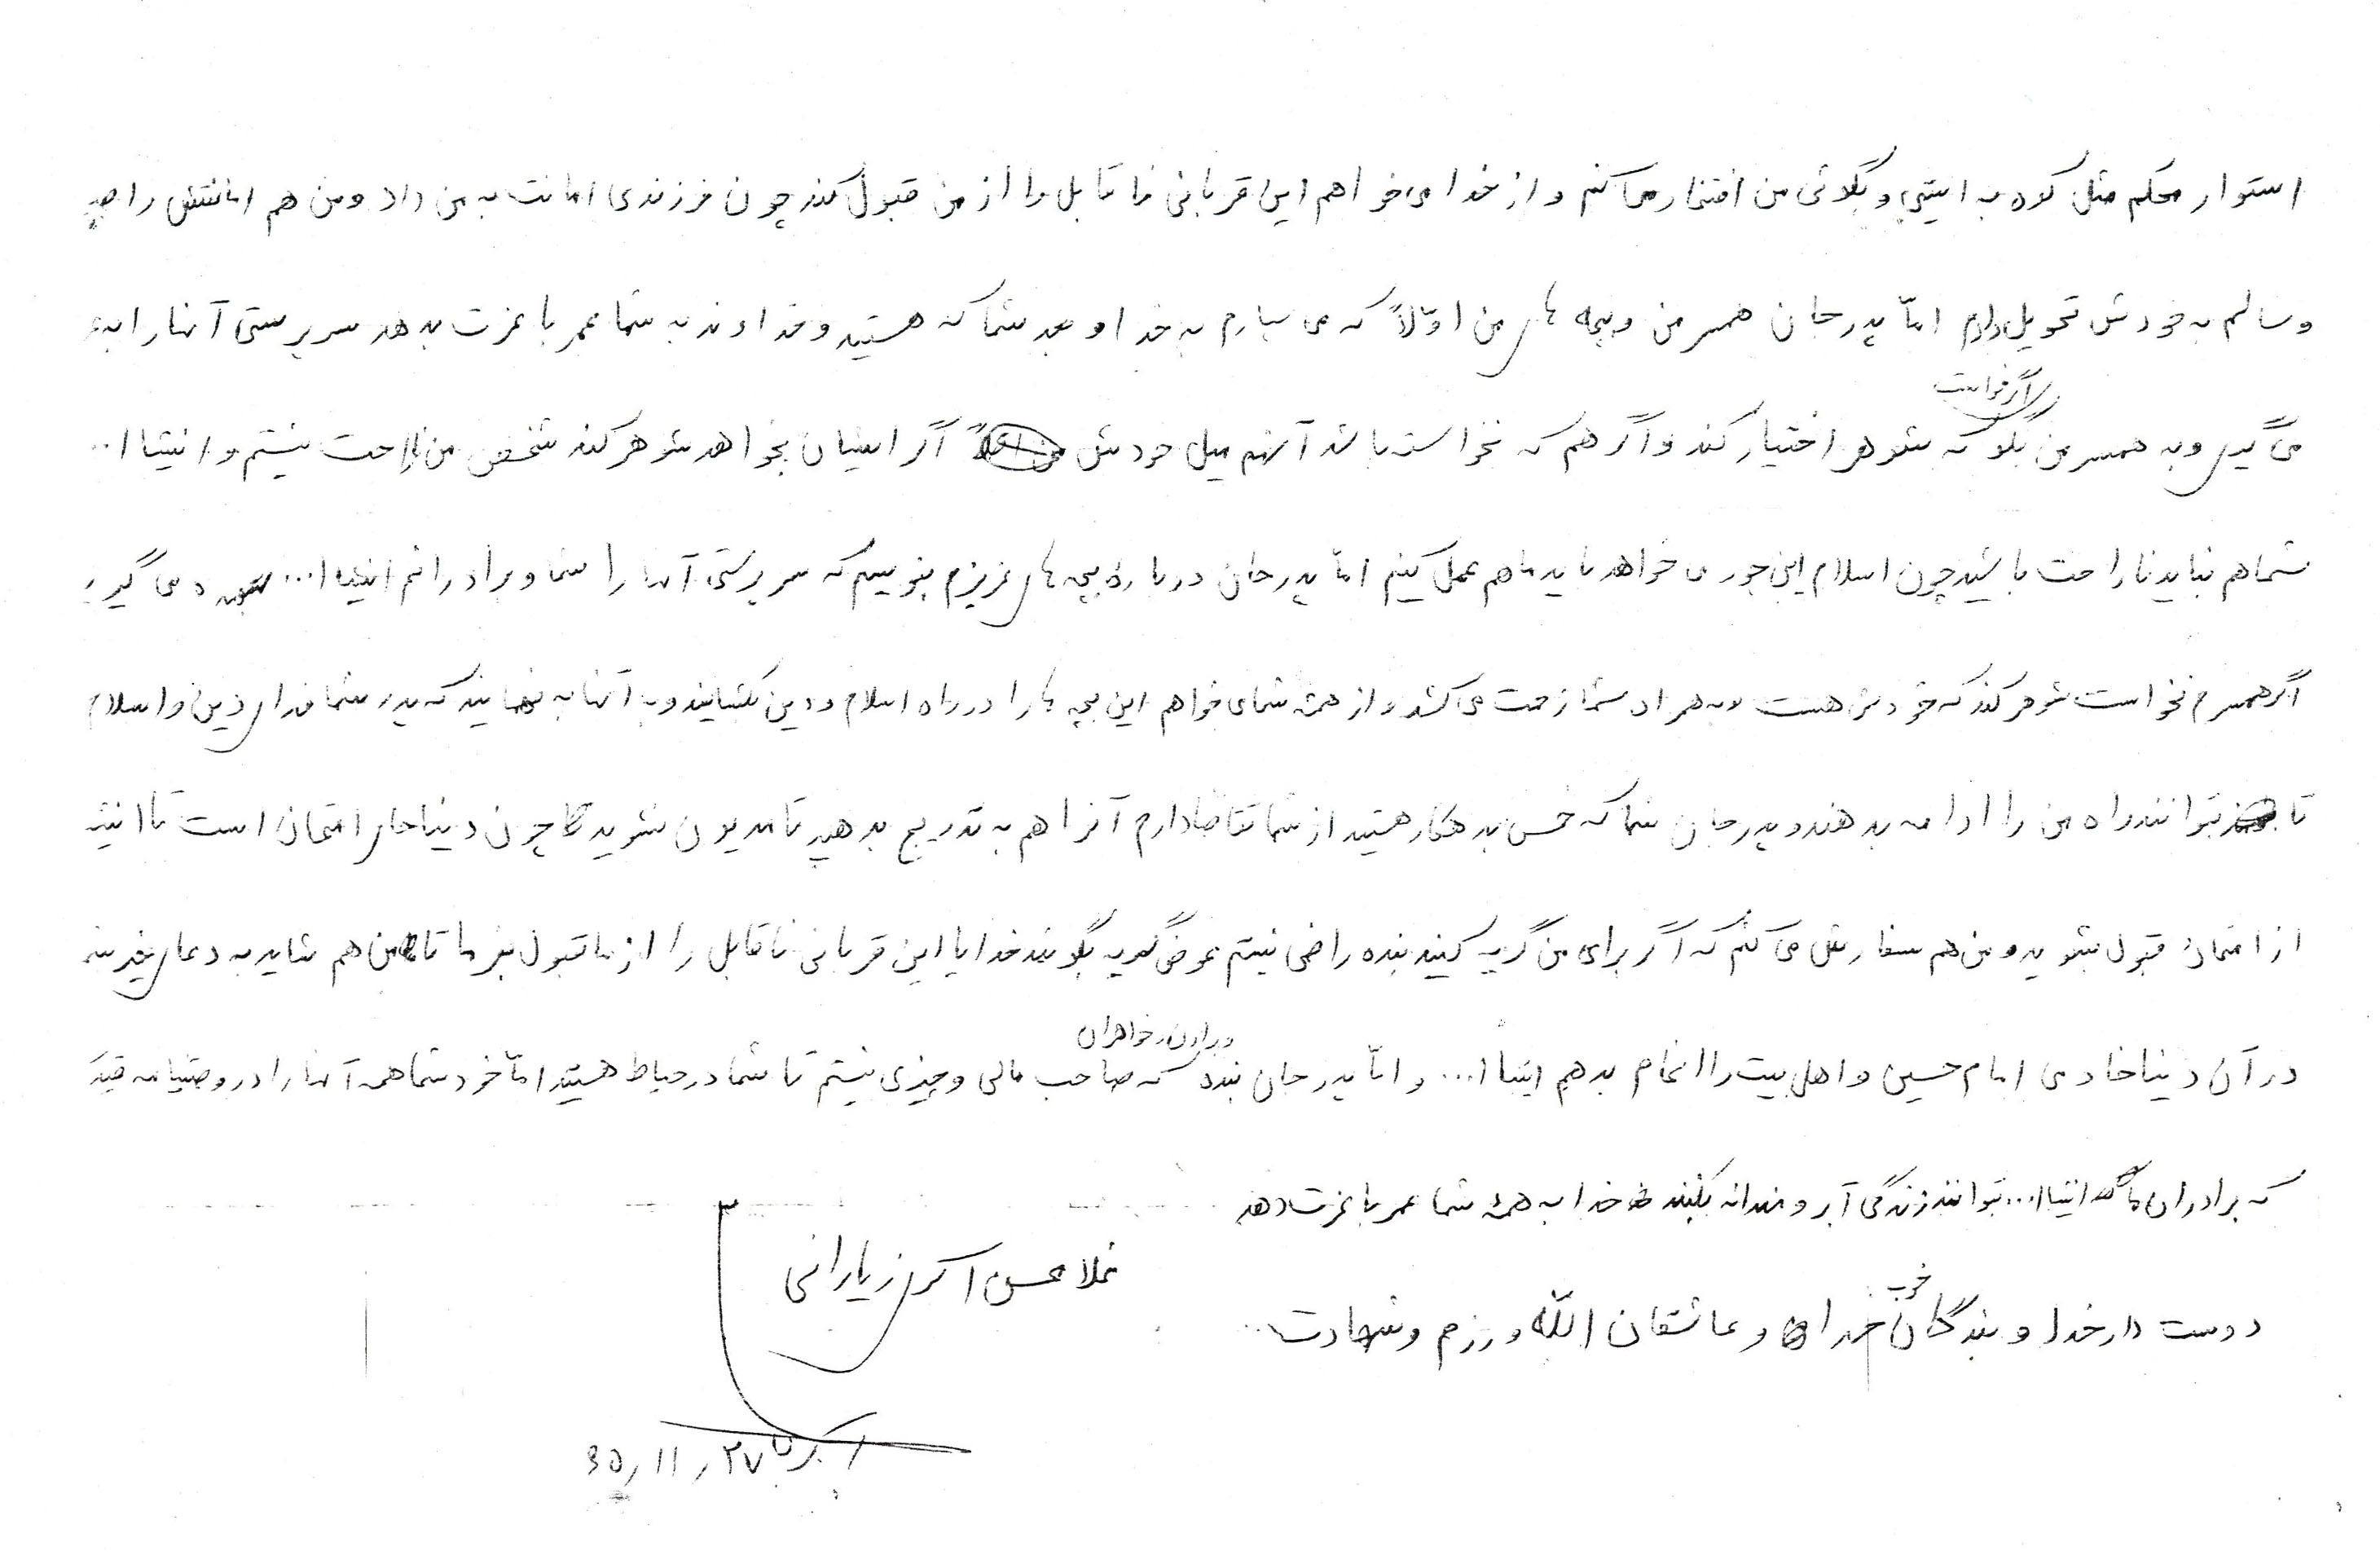 استوار محکم مثل کوه به ایستی و بگوئی من افتخار می کنم و از خدا می خواهم این قربانی نا قابل را از من قبول کند چون فرزندی امانت به من داد و من هم امانتش را صحیح
و سالم به خودش تحویل دادم امّا پدر جان همسر من و بچه های من اوّلاً که می سپارم به خدا و بعد شما که هستید و خداوند به شما عمر با عزت بدهد سرپرستی آنها را به
اگر خواست
می گیری و به همسر من بگو که شوهر اختیار کند و اگر هم که نخواسته باشد آنهم میل خودش اگر ایشان بخواهد شوهر کند شخص من ناراحت نیستم و انشاا..
شما هم نباید ناراحت باشید چون اسلام این جور می خواهد باید ما هم عمل کنیم امّا پدر جان درباره بچه های عزیزم بنویسم که سرپرستی آنها را شما و برادرانم انشاا... به عهده می گیرید
اگر همسرم نخواست شوهر کند که خودش هست و به همراه شما زحمت می کشد و از همۀ شما می خواهم این بچه ها را در راه اسلام و دین بکشانید و به آنها به فهمانید که پدر شما فدای دین و اسلام
تا بتوانند راه من را ادامه بدهند و پدر جان شما که خمس بدهکار هستید از شما تقاضا دارم آنرا هم به تدریج بدهید تا مدیون نشوید چون دنیا جای امتحان است تا انشا
از امتحان قبول بشوید و من هم سفارش می کنم که اگر برای من گریه کنید بنده راضی نیستم عوض گریه بگوئید خدایا این قربانی نا قابل را از ما قبول بفرما تا من هم شاید به دعای خیر شما
و برادران و خواهران
در آن دنیا خادمی امام حسین و اهل بیت را انجام بدهم انشاا... و امّا پدر جان بنده که صاحب مالی و چیزی نیستم تا شما در حیاط هستید امّا خود شما همه آنها را در وصیتنامه قید
که برادران ما انشاا... بتوانند زندگی آبرومندانه بکنند خدا به همۀ شما عمر با عزت دهد
غلامحسین اکبری زیارانی
خوب
دوست دار خدا و بندگان خدا و عاشقان الله و رزم و شهادت..
اکبری ۲۷ ر ۱۱ ر ۶۵